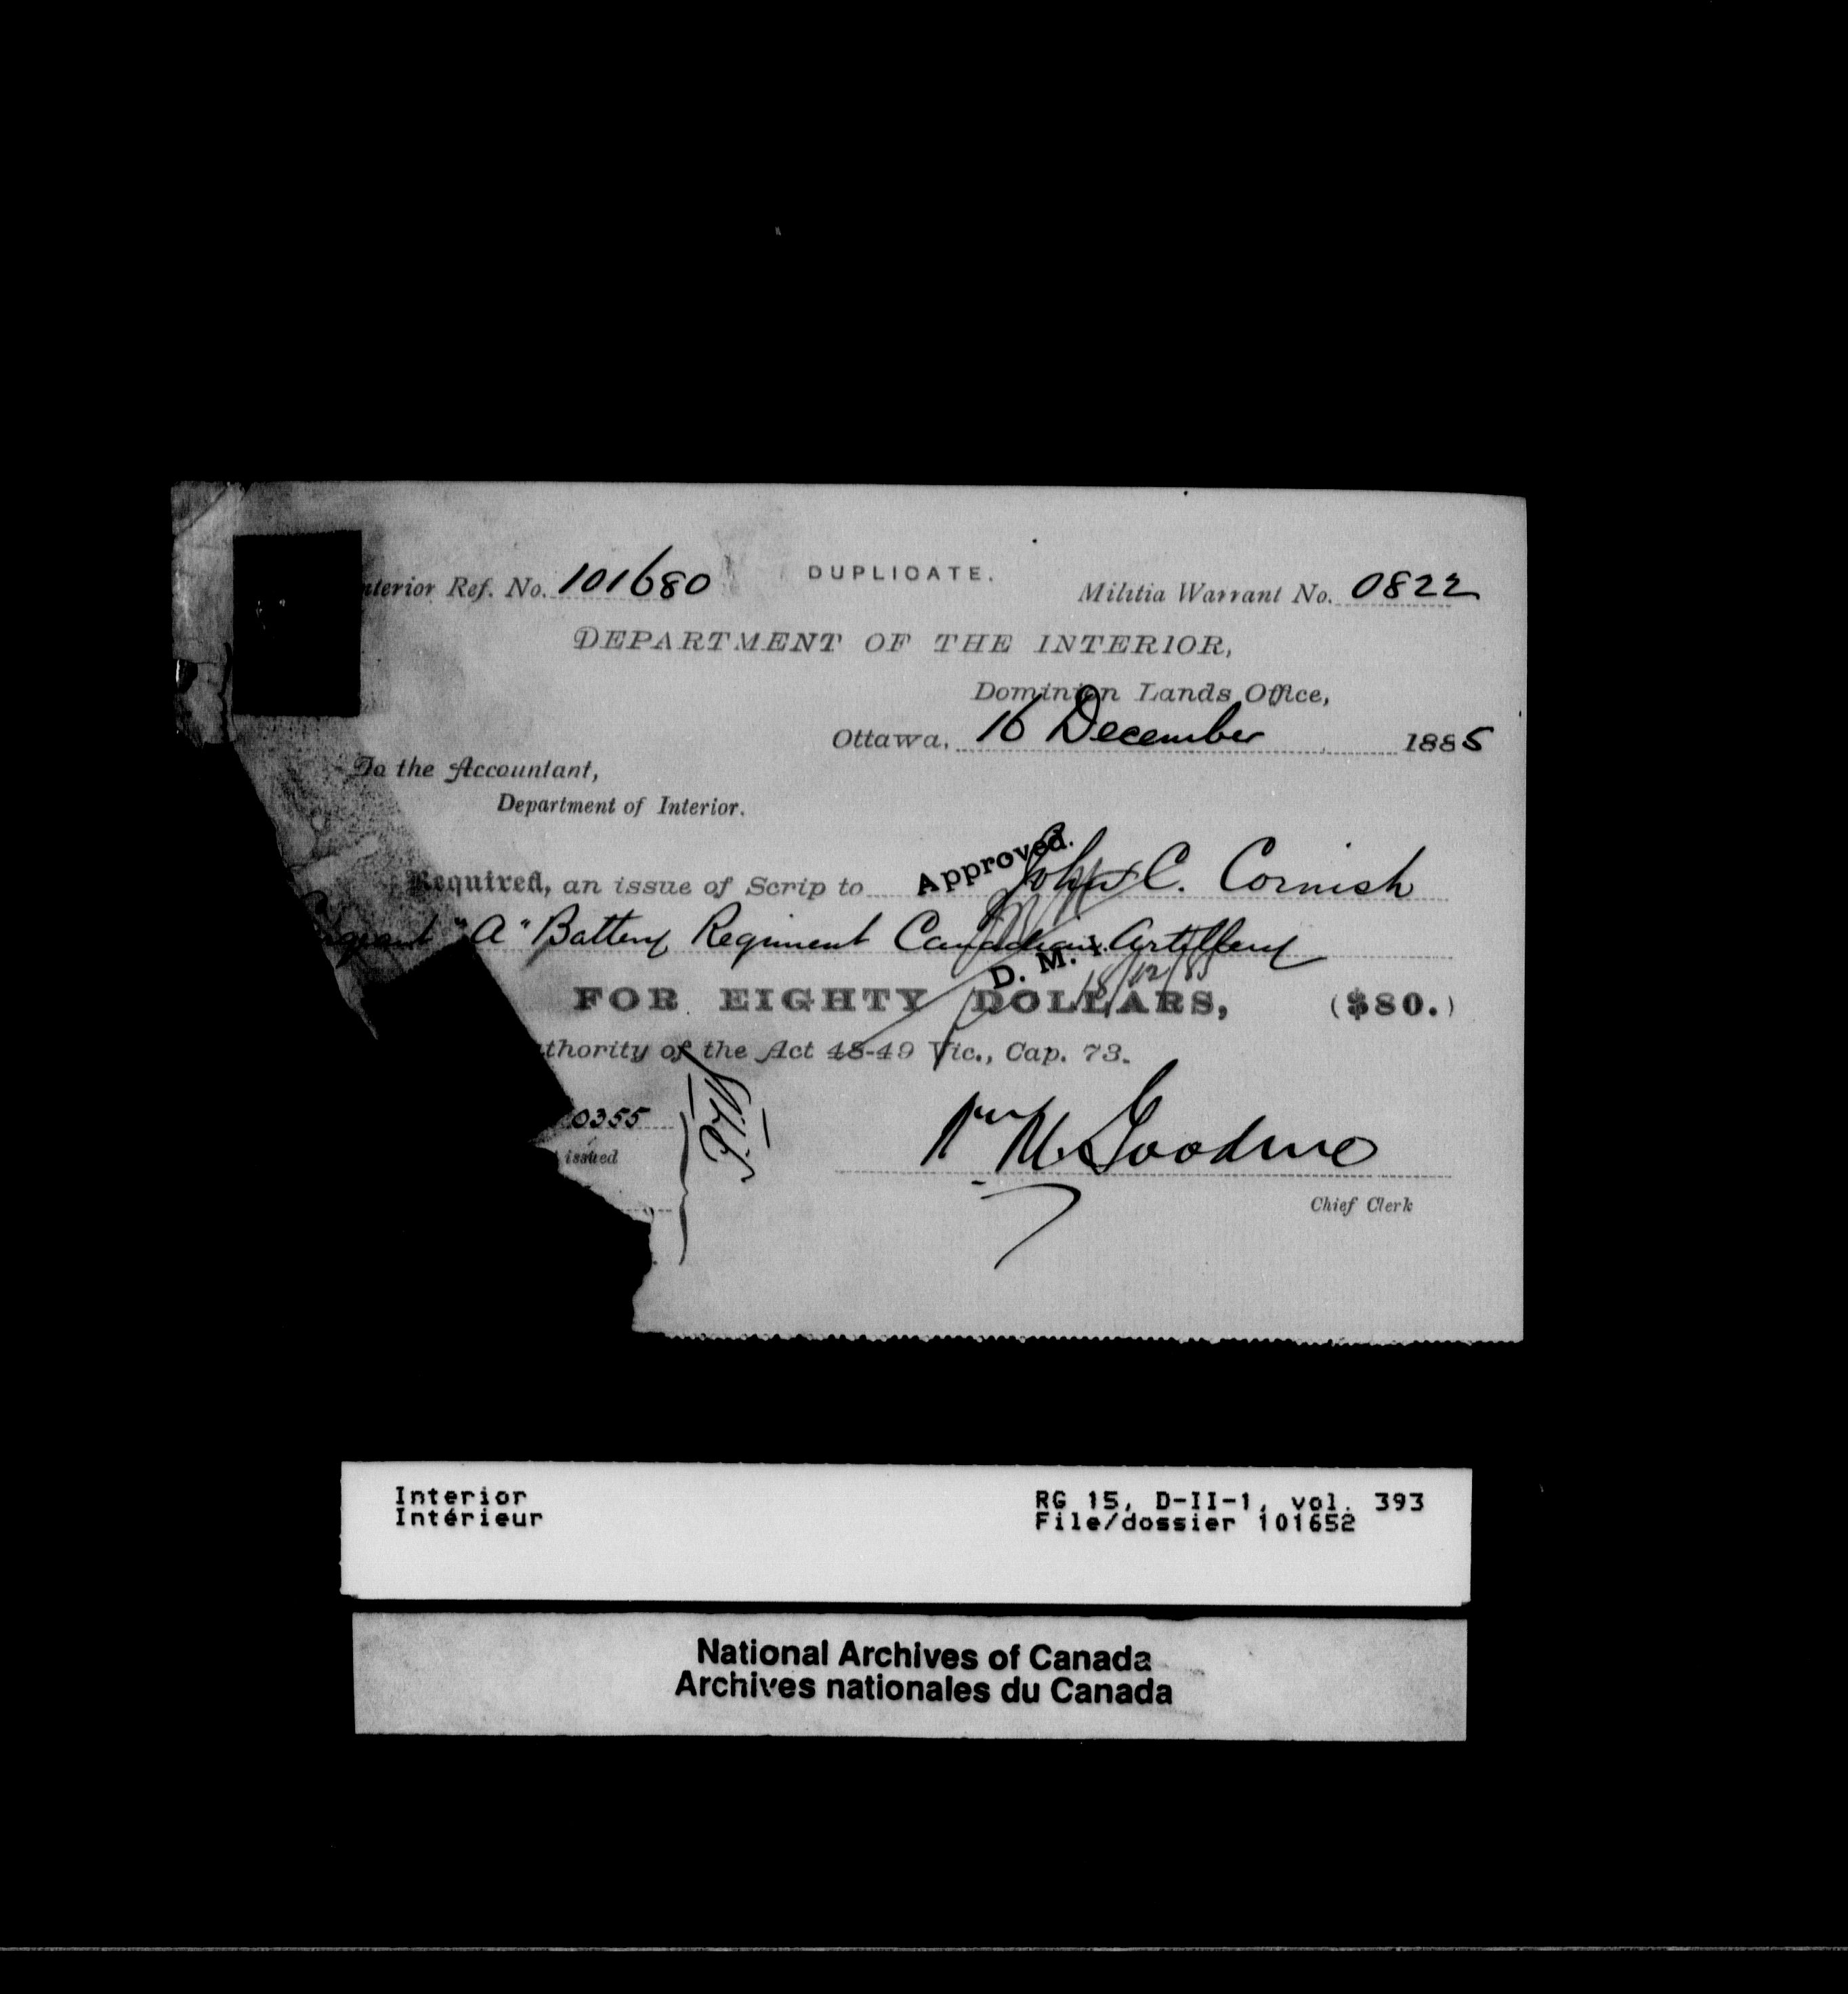 nterior Ref. No. 101680 DUPLICATE. Militia Warrant No. 0822
DEPARTMENT OF THE INTERIOR,
Dominion Lands Office,
Ottawa, 16 December 1885
To the Accountant,
Department of Interior.
Approved.
Required, an issue of Scrip to John C. Cornish
geant "A" Battery Regiment Canadian Artillery
D. M. I.
18/12/85
FOR EIGHTY DOLLARS, ($80.)
thority of the Act 48-49 Vic., Cap. 73.
0355
issued
Chief Clerk
Interior
Intérieur
RG 15, D-II-1, vol. 393
File/dossier 101652
National Archives of Canada
Archives nationales du Canada